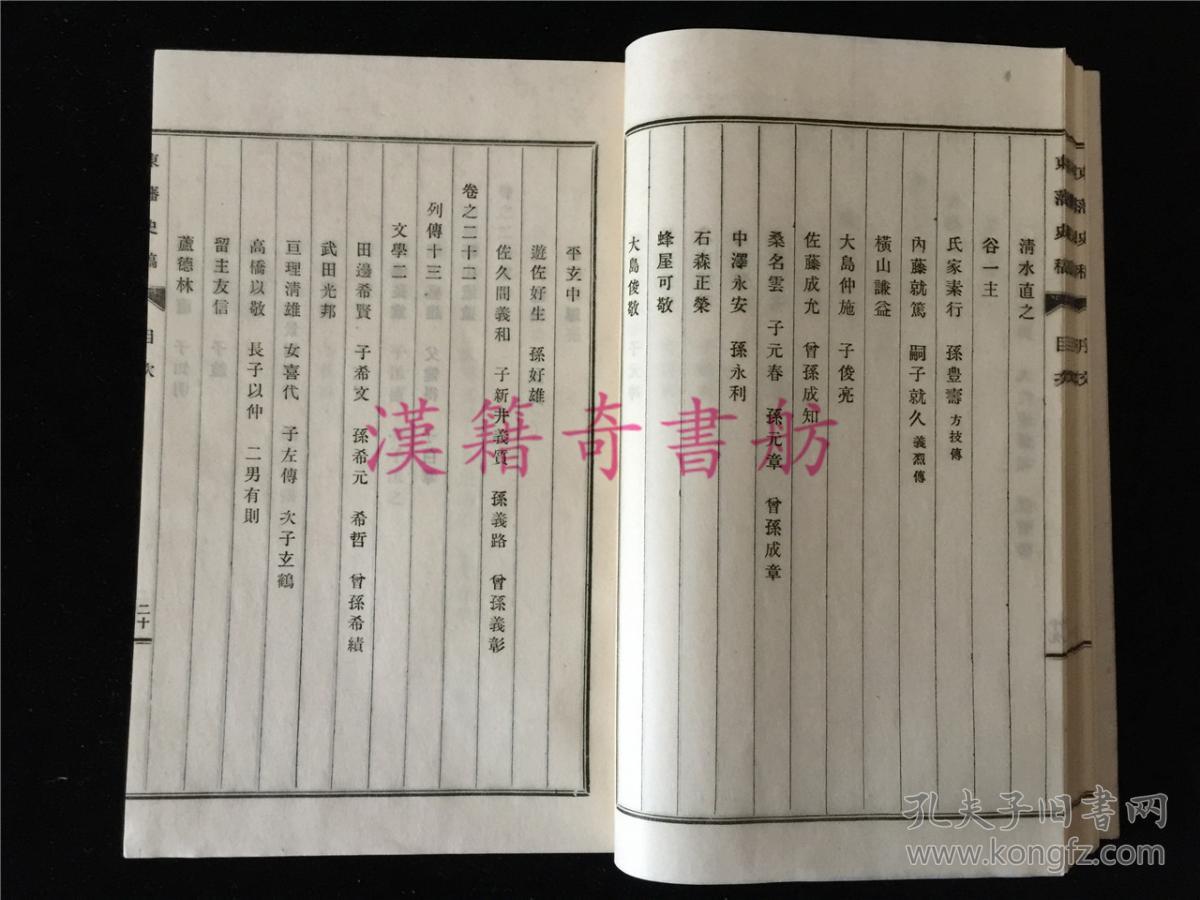 清水直之
谷一主
氏家素行 孫豊壽 方技傳
內藤就篤 嗣子就久 義烈傳
橫山謙益
大島仲施 子俊亮
佐藤成允 曾孫成知
桑名雲 子元春 孫元章 曾孫成章
中澤永安 孫永利
石森正榮
蜂屋可敬
大島俊敬
平玄中
遊佐好生 孫好雄
佐久間義和 子新井義質 孫義路 曾孫義彰
卷之二十二
列傳十三
文學二
田邊希賢 子希文 孫希元 希哲 曾孫希績
武田光邦
亘理清雄 女喜代 子左傳 次子玄鶴
高橋以敬 長子以仲 二男有則
留主友信
蘆德林
東藩史稿 目次 二十
東藩史稿 目次
漢籍奇書舫
孔夫子旧书网
www.kongfz.com